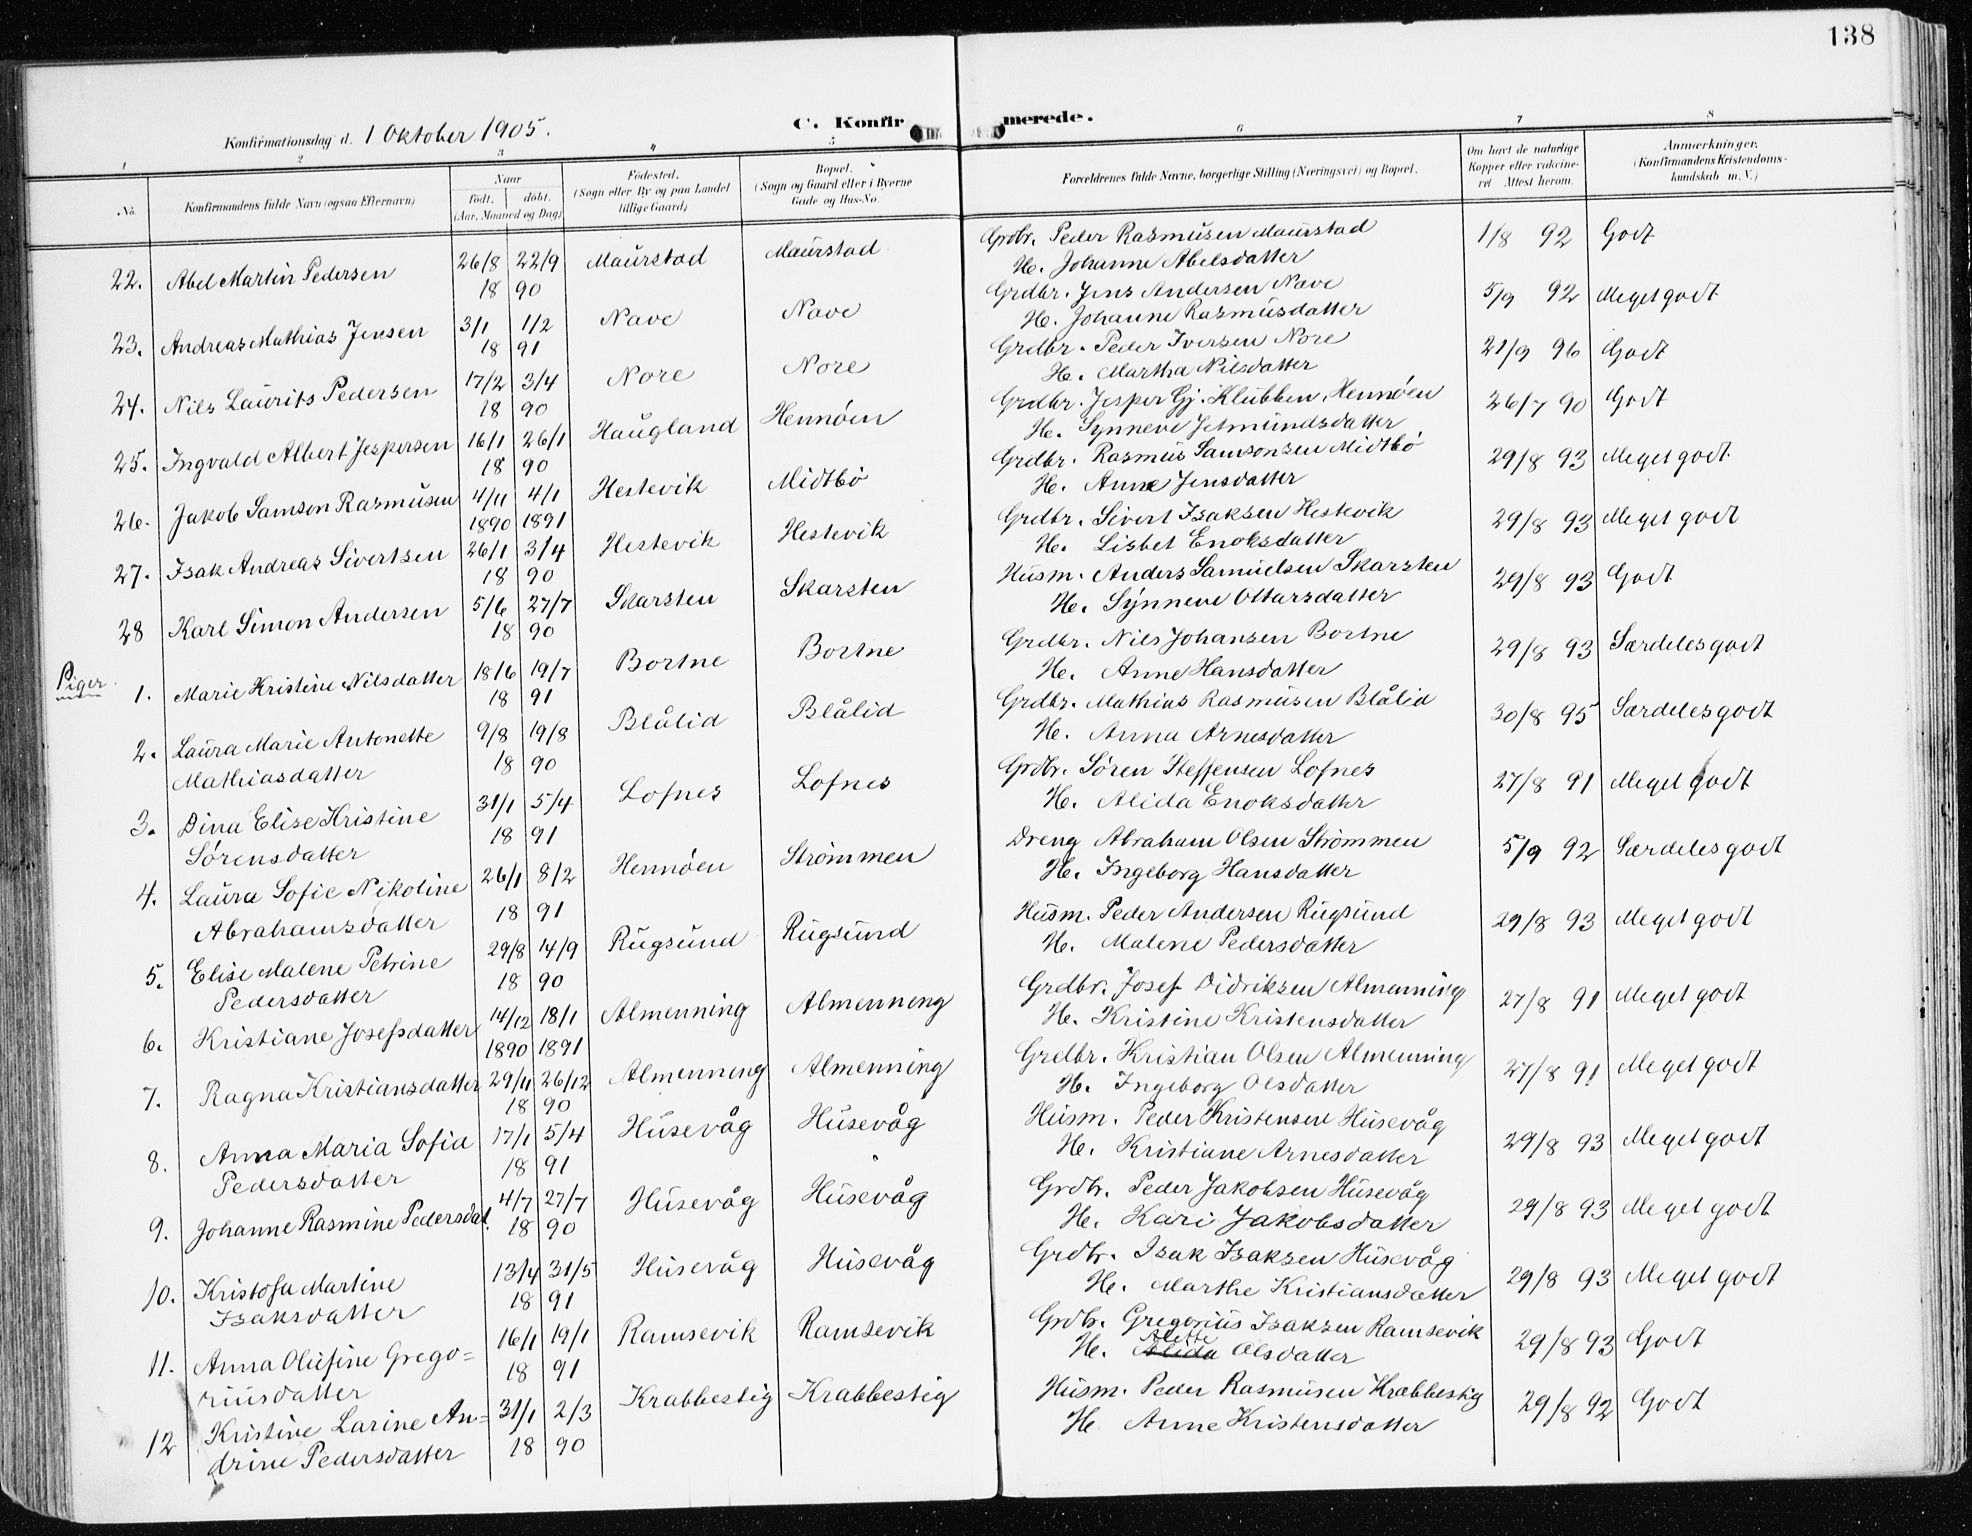 138
Konfirmationsdag d. 1 Oktober 1905.
C. Konfirmerede.
1 2 3 4 5 6 7 8
No.
Konfirmandens fulde Navn (ogsaa Efternavn)
Naar
født. døbt.
(Aar, Maaned og Dag)
Fødested.
(Sogn eller By og paa Landet
tillige Gaard)
Bopæl.
(Sogn og Gaard eller i Byerne
Gade og Hus-No.
Forældrenes fulde Navne, borgerlige Stilling (Næringsvei) og Bopæl.
Om havt de naturlige
Kopper eller vakcine-
ret Attest herom.
Anmærkninger.
(Konfirmandens Kristendoms-
kundskab m. V.)
22. Abel Martin Pedersen 26/8 22/9 Maurstad Maurstad Grdbr. Peder Rasmusen Maurstad 1/8 92 Godt
18 90 H. Johanne Abelsdatter
23. Andreas Mathias Jensen 3/1 1/2 Nave Nave Grdbr. Jens Andersen Nave 5/9 92 Meget godt
18 91 H. Johanne Rasmusdatter
24. Nils Laurits Pedersen 17/2 3/4 Nore Nore Grdbr. Peder Iversen Nore 21/9 96 Godt
18 90 H. Martha Nilsdatter
25. Ingvald Albert Jespersen 16/1 26/1 Haugland Hennøen Grdbr. Jesper Gj. Klubben, Hennøen 26/7 90 Godt
18 90 H. Synneve Jetmundsdatter
26. Jakob Samson Rasmusen 4/11 4/1 Hestevik Midtbø Grdbr. Rasmus Samsonsen Midtbø 29/8 93 Meget godt
1890 1891 H. Anne Jensdatter
27. Isak Andreas Sivertsen 26/1 3/4 Hestevik Hestevik Grdbr. Sivert Isaksen Hestevik 29/8 93 Meget godt
18 90 H. Lisbet Enoksdatter
28 Karl Simon Andersen 5/6 27/7 Skarsten Skarsten Husm. Anders Samuelsen Skarsten 29/8 93 Godt
18 90 H. Synneve Ottarsdatter
Piger.
1. Marie Kristine Nilsdatter 18/6 19/7 Bortne Bortne Grdbr. Nils Johansen Bortne 29/8 93 Særdeles godt
18 91 H. Anne Hansdatter
2. Laura Marie Antonette 9/8 19/8 Blålid Blålid Grdbr. Mathias Rasmusen Blålid 30/8 95 Særdeles godt
Mathiasdatter 18 90 H. Anna Arnesdatter
3. Dina Elise Kristine 31/1 5/4 Lofnes Lofnes Grdbr. Søren Steffensen Lofnes 27/8 91 Meget godt
Sørensdatter 18 91 H. Alida Enoksdatter
4. Laura Sofie Nikoline 26/1 8/2 Hennøen Strømmen Dreng Abraham Olsen Strømmen 5/9 92 Særdeles godt
Abrahamsdatter 18 91 H. Ingeborg Hansdatter
5. Elise Malene Petrine 29/8 14/9 Rugsund Rugsund Husm. Peder Andersen Rugsund 29/8 93 Meget godt
Pedersdatter 18 90 H. Malene Pedersdatter
6. Kristiane Josefsdatter 14/12 18/1 Almenning Almenning Grdbr. Josef Didriksen Almenning 27/8 91 Meget godt
1890 1891 H. Kristine Kristensdatter
7. Ragna Kristiansdatter 29/11 26/12 Almenning Almenning Grdbr. Kristian Olsen Almenning 27/8 91 Meget godt
18 90 H. Ingeborg Olsdatter
8. Anna Maria Sofia 17/1 5/4 Husevåg Husevåg Husm. Peder Kristensen Husevåg 29/8 93 Meget godt
Pedersdatter 18 91 H. Kristiane Arnesdatter
9. Johanne Rasmine Pedersdat. 4/7 27/7 Husevåg Husevåg Grdbr. Peder Jakobsen Husevåg 29/8 93 Meget godt
18 90 H. Kari Jakobsdatter
10. Kristofa Martine 13/4 31/5 Husevåg Husevåg Grdbr. Isak Isaksen Husevåg 29/8 93 Meget godt
Isaksdatter 18 91 H. Marthe Kristiansdatter
11. Anna Olufine Grego= 16/1 19/1 Ramsevik Ramsevik Grdbr. Gregorius Isaksen Ramsevik 29/8 93 Godt
riusdatter 18 91 H. Alida Alette Olsdatter
12 Kristine Larine An= 31/1 2/3 Krabbestig Krabbestig Husm. Peder Rasmusen Krabbestig 29/8 92 Godt
drine Pedersdatter 18 90 H. Anne Kristensdatter